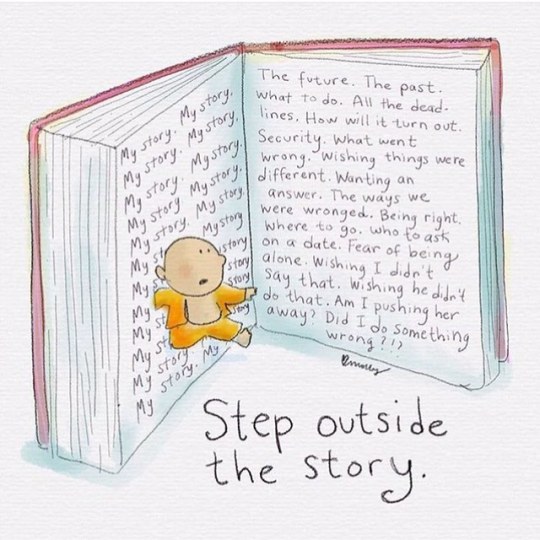 My story. My story.
My story. My story.
My story. My story.
My story My story.
My story. My story
My st My story
My story
My s story
My s story
My st
My story.
My story. My
My
The future. The past.
What to do. All the dead-
lines. How will it turn out.
Security. What went
wrong. Wishing things were
different. Wanting an
answer. The ways we
were wronged. Being right.
Where to go. who to ask
on a date. Fear of being
alone. Wishing I didn't
say that. Wishing he didn't
do that. Am I pushing her
away? Did I do something
wrong?!?
Step outside
the story.